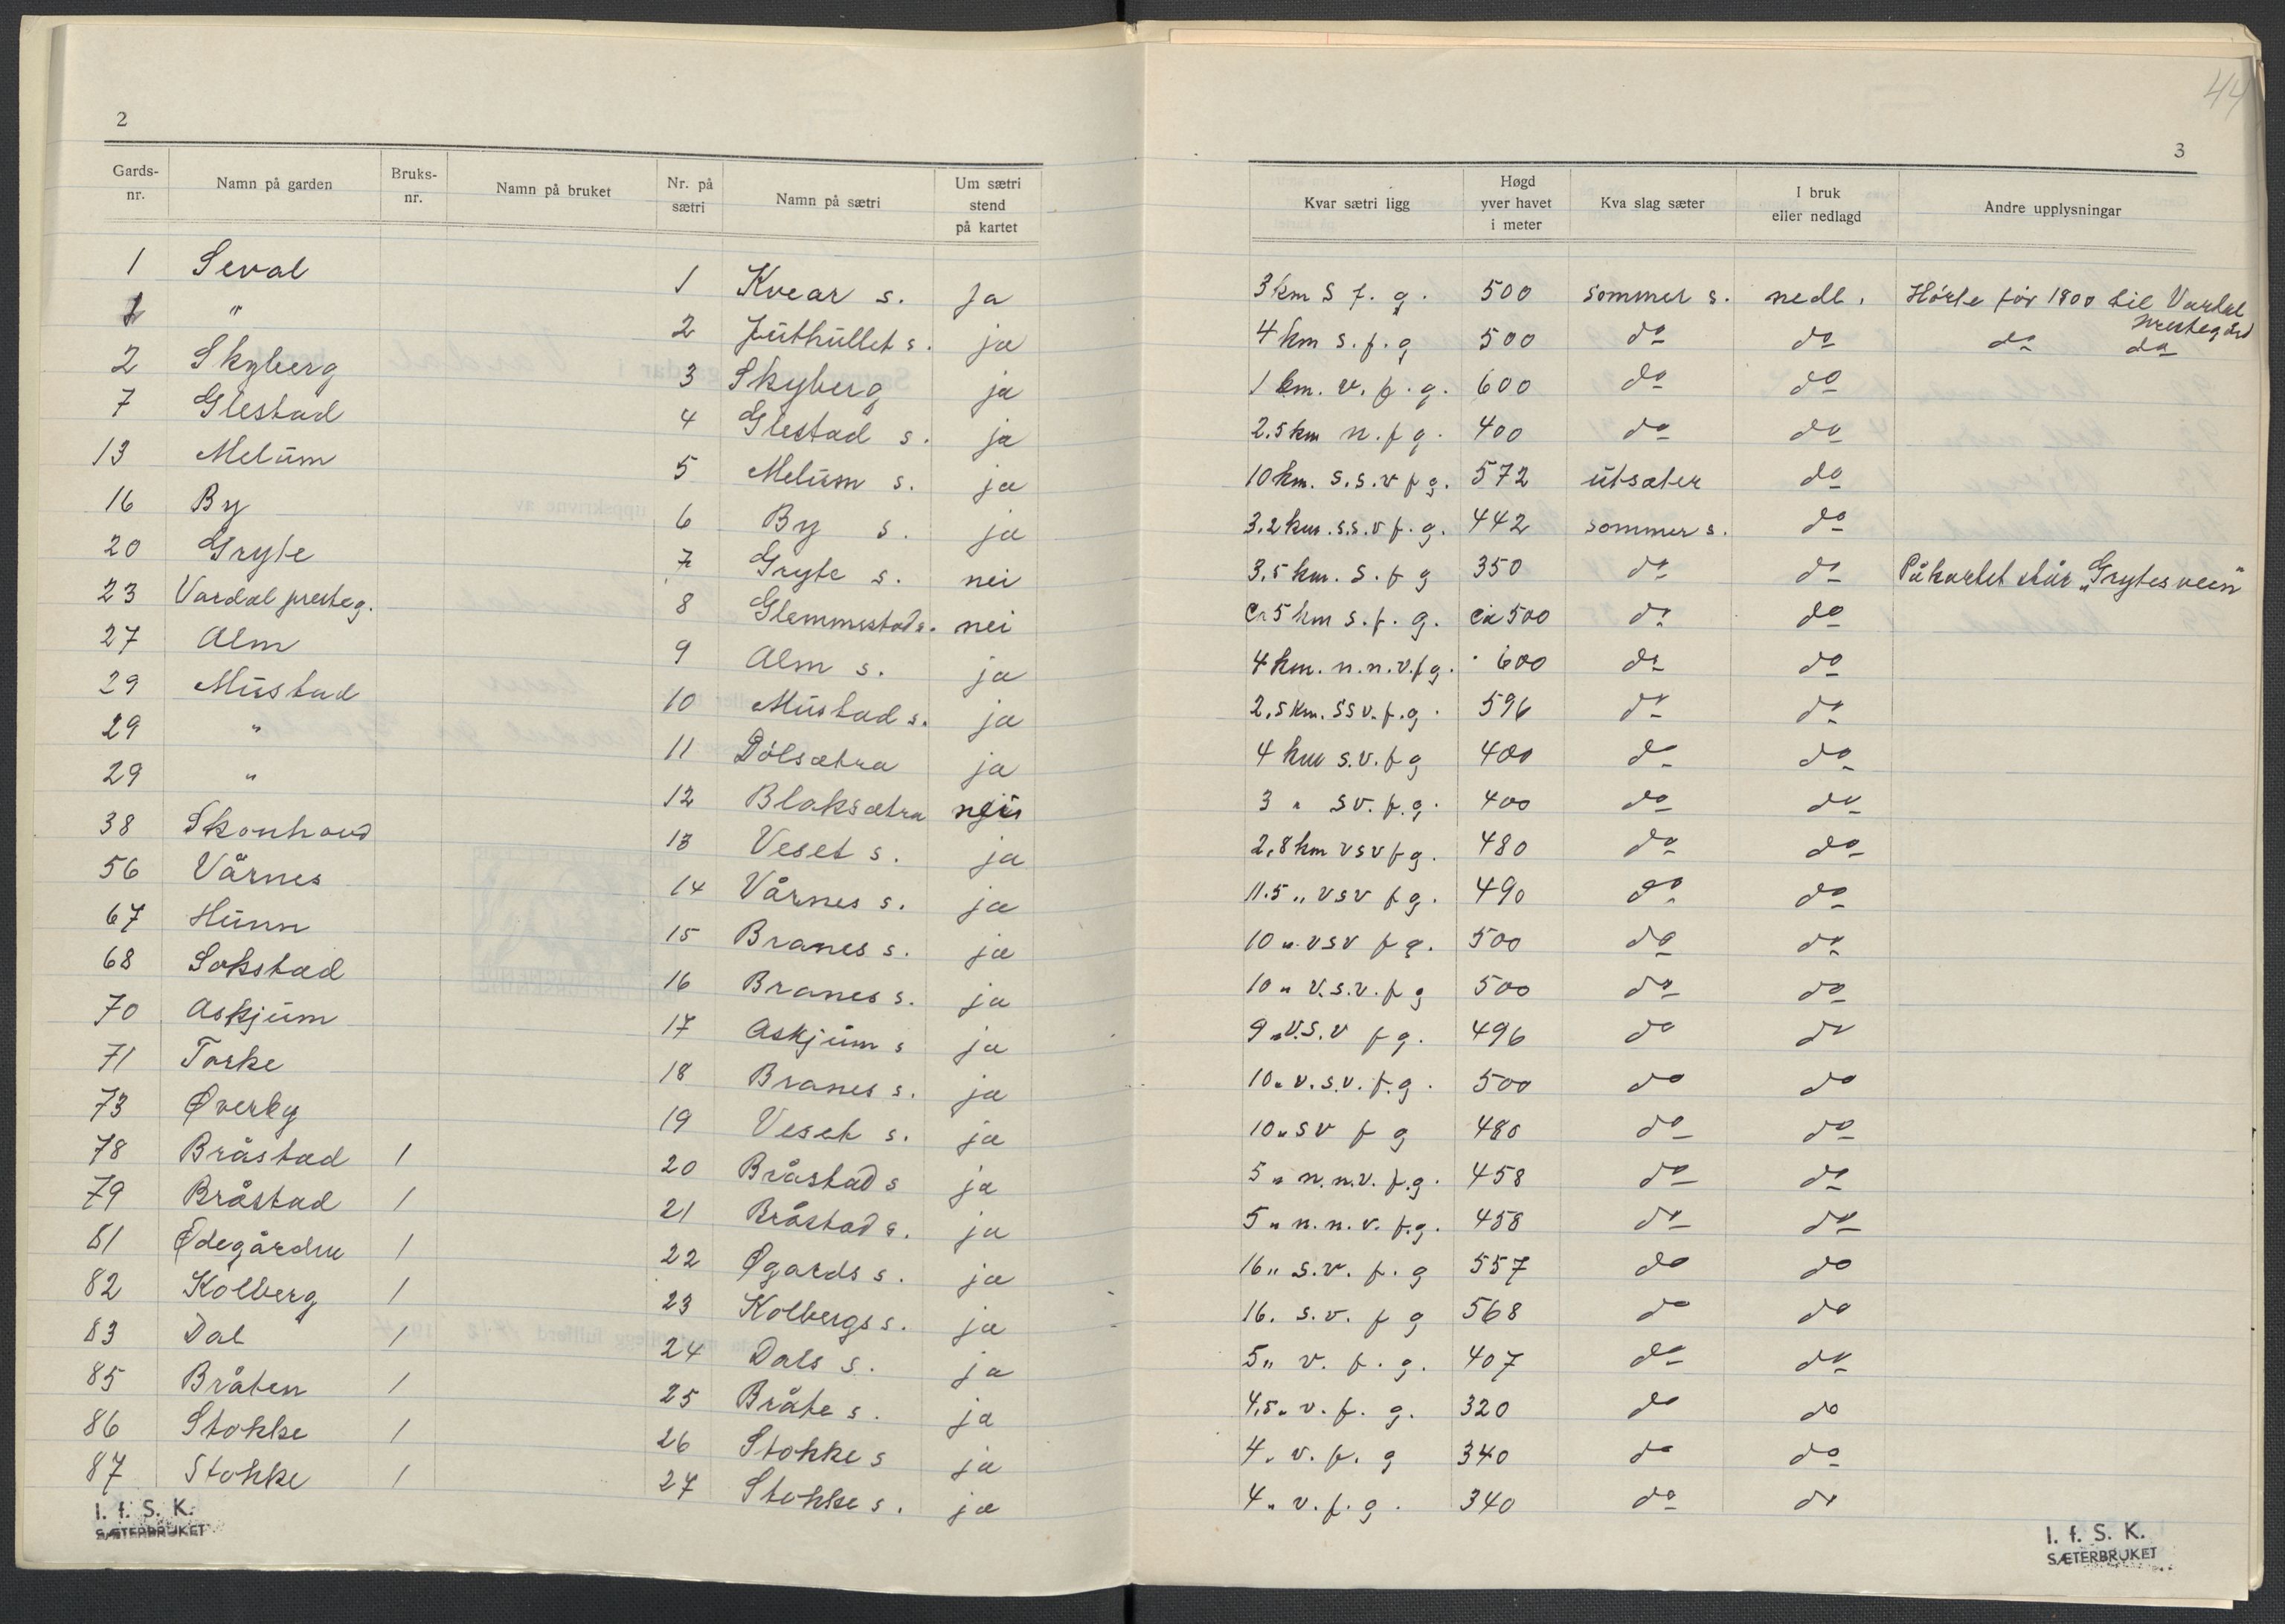 44
2
3
Gards-nr. Namn på garden Bruks-nr. Namn på bruket Nr. på sætri Namn på sætri Um sætri stend på kartet Kvar sætri ligg Høgd yver havet i meter Kva slag sæter I bruk eller nedlagd Andre upplysningar
1 Seval 1 Kvear s. Ja 3 km S f. g. 500 sommer s. nedl. Hørte før 1800 til Vardal prestegård
1 " 2 Juthullet s. ja 4 km s. f. g 500 do do do do
2 Skyberg 3 Skyberg ja 1 km. v. f. g. 600 do do
7 Glestad 4 Glestad s. ja 2.5 km n. f g. 400 do do
13 Melum 5 Melum s. ja 10 km. s.s.v f g. 572 utsæter do
16 By 6 By s. ja 3.2 km. s.s.v f. g. 442 sommer s. do
20 Gryte 7 Gryte s. nei 3,5 km. S. f g 350 do do På kartet står „Grytesveen"
23 Vardal presteg. 8 Glemmestad s. nei Ca 5 km s. f. g. ca 500 do do
27 Alm 9 Alm s. ja 4 km. n.n.v. f g. " 600 do do
29 Mustad 10 Mustad s. ja 2,5 km. SSv. f. g. 596 do do
29 " 11 Dølsætra ja 4 km s.v. f g 400 do do
29 " 12 Blaksætra nei 3 " sv. f. g. 400 do do
38 Skonhovd 13 Veset s. ja 2,8 km vsv f g. 480 do do
56 Vårnes 14 Vårnes s. ja 11.5 „ vsv f g. 490 do do
67 Hunn 15 Branes s. ja 10 „ vsv f g. 500 do do
68 Sokstad 16 Branes s. ja 10 „ v.s.v. f g 500 do do
70 Askjum 17 Askjum s ja 9 „ v.s.v f g. 496 do do
71 Torke 18 Branes s. ja 10 „ v.s.v. f. g. 500 do do
73 Øverby 19 Veset s. ja 10 „ sv f g 480 do do
78 Bråstad 1 20 Bråstad s ja 5 „ n.n.v. f. g. 458 do do
79 Bråstad 1 21 Bråstad s. ja 5 „ n.n.v. f. g. 458 do do
81 Ødegården 1 22 Øgards s. ja 16 „ s.v. f. g 557 do do
82 Kolberg 1 23 Kolbergs s. ja 16. s.v. f g 568 do do
83 Dal 1 24 Dals s. ja 5 „ v. f. g. 407 do do
85 Bråten 1 25 Bråte s. ja 4,5 „ v. f. g. 320 do do
86 Stokke 1 26 Stokke s ja 4 „ v. f. g 340 do do
87 Stokke 1 27 Stokke s. ja 4 „ v. f. g. 340 do do
I. f. S. K.
SÆTERBRUKET
I. f. S. K.
SÆTERBRUKET